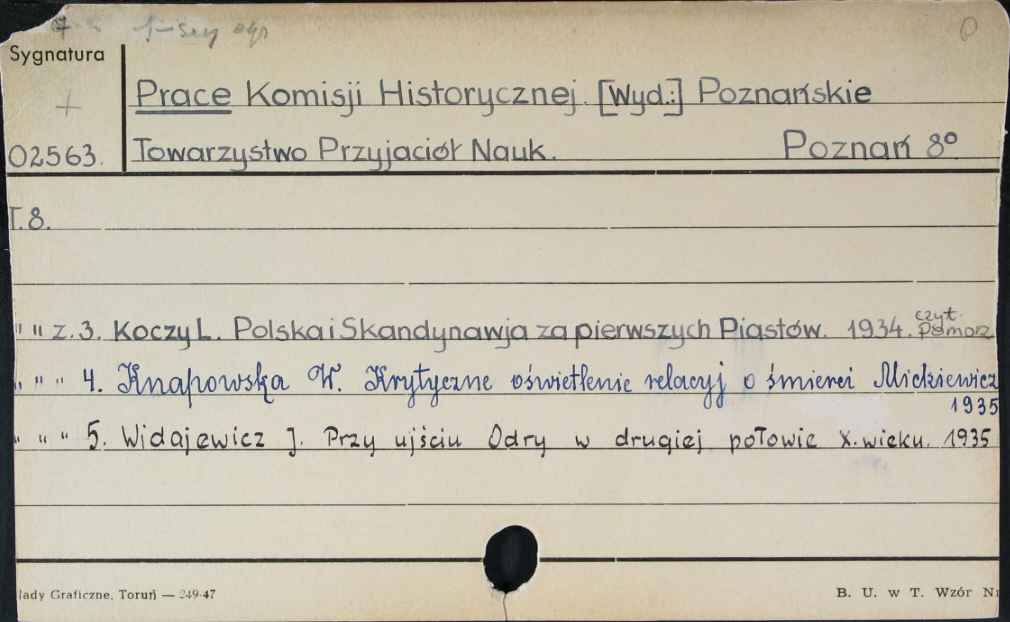 Sygnatura
+
02563.
Prace Komisji Historycznej. [Wyd.:] Poznańskie
Towarzystwo Przyjaciół Nauk. Poznań 8°
T. 8.
" " z. 3. Koczy L. Polska i Skandynawja za pierwszych Piastów. 1934. czyt. Pomorz
" " " 4. Knapowska W. Krytyczne oświetlenie relacyj o śmierci Mickiewicz
1935
" " " 5. Widajewicz J. Przy ujściu Odry w drugiej połowie X. wieku. 1935
łady Graficzne, Toruń — 249-47
B. U. w T. Wzór Nr